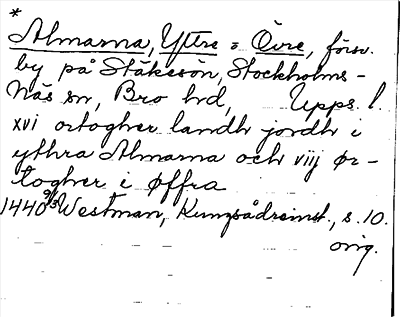 *
Almarna, Yttre o Övre, försv.
by på Stäkesön, Stockholms-
Näs sn, Bro hd, Upps. l.
xvi ortogher landh jordh i
ythra Almarna och viij ør-
togher i øffra
1440 9/3 Westman, s. 10.
orig.